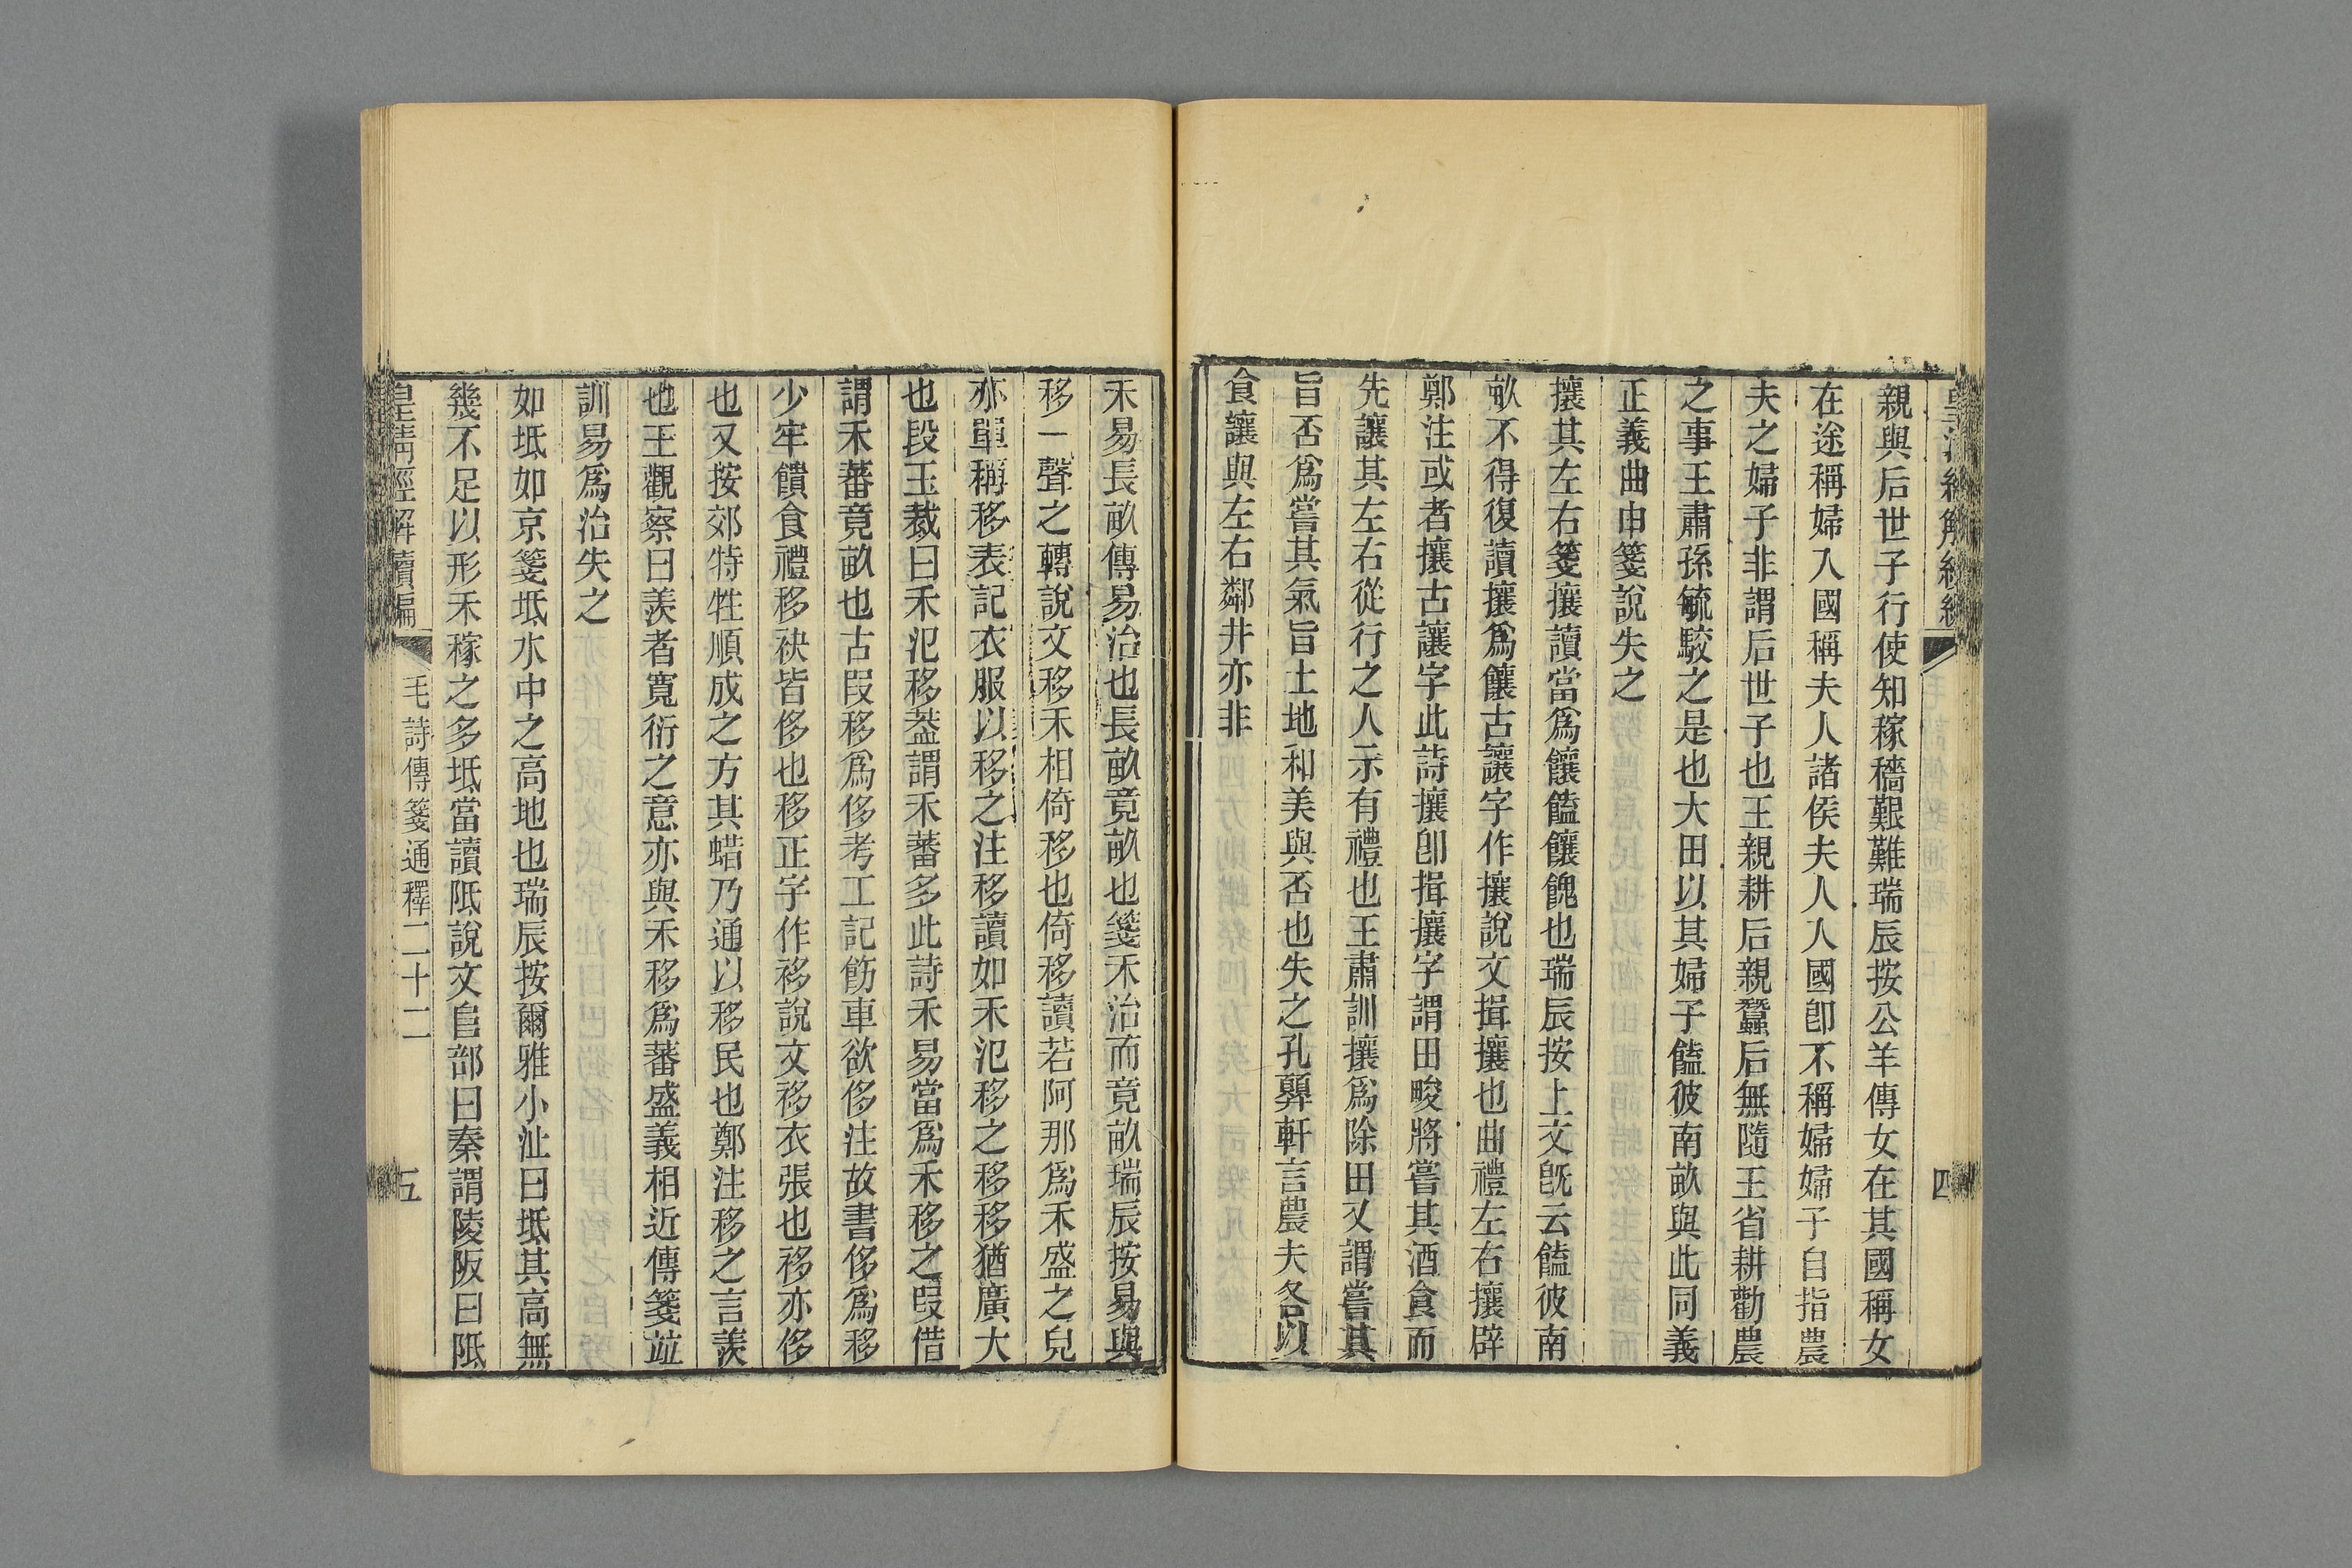 親與后世子行使知稼穡艱難瑞辰按公羊傳女在其國稱女
在途稱婦入國稱夫人諸侯夫人入國卽不稱婦婦子自指農
夫之婦子非謂后世子也王親耕后親蠶后無隨王省耕勸農
之事王肅孫毓駮之是也大田以其婦子饁彼南畝與此同義
正義曲申箋說失之
攘其左右箋攘讀當爲饟饁饟餽也瑞辰按上文旣云饁彼南
畝不得復讀攘爲饟古讓字作攘說文揖攘也曲禮左右攘辟
鄭注或者攘古讓字此詩攘卽揖攘字謂田畯將嘗其酒食而
先讓其左右從行之人示有禮也王肅訓攘爲除田又謂嘗其
旨否爲嘗其氣旨土地和美與否也失之孔䕫軒言農夫各以
食讓與左右鄰井亦非
四
禾易長畝傳易治也長畝竟畝也箋禾治而竟畝瑞辰按易與
移一聲之轉說文移禾相倚移也倚移讀若阿那爲禾盛之皃
亦單稱移表記衣服以移之注移讀如禾氾移之移移猶廣大
也段玉裁曰禾氾移葢謂禾蕃多此詩禾易當爲禾移之叚借
謂禾蕃竟畝也古叚移爲侈考工記飭車欲侈注故書侈爲移
少牢饋食禮移袂皆侈也移正字作袳說文袳衣張也移亦侈
也又按郊特牲順成之方其蜡乃通以移民也鄭注移之言羨
也王觀察曰羨者寬衍之意亦與禾移爲蕃盛義相近傳箋竝
訓易爲治失之
如坻如京箋坻水中之高地也瑞辰按爾雅小沚曰坻其高無
幾不足以形禾稼之多坻當讀阺說文𨸏部曰秦謂陵阪曰阺
皇清經解續編
毛詩傳箋通釋二十二
五